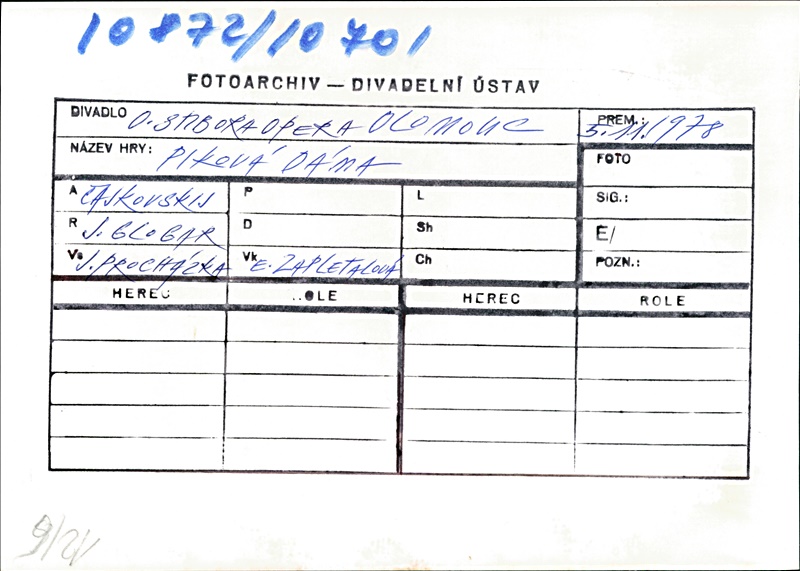 10872/10701
FOTOARCHIV — DIVADELNÍ ÚSTAV
DIVADLO O. STIBORA OPERA OLOMOUC
PREM.: 5.11.1978
NÁZEV HRY: PIKOVÁ DÁMA
FOTO
A ČAJKOVSKIJ P L SIG.:
R J. GLOGAR D Sh É/
Vs J. PROCHÁZKA Vk E. ZAPLETALOVÁ Ch POZN.:
HEREC ROLE HEREC ROLE